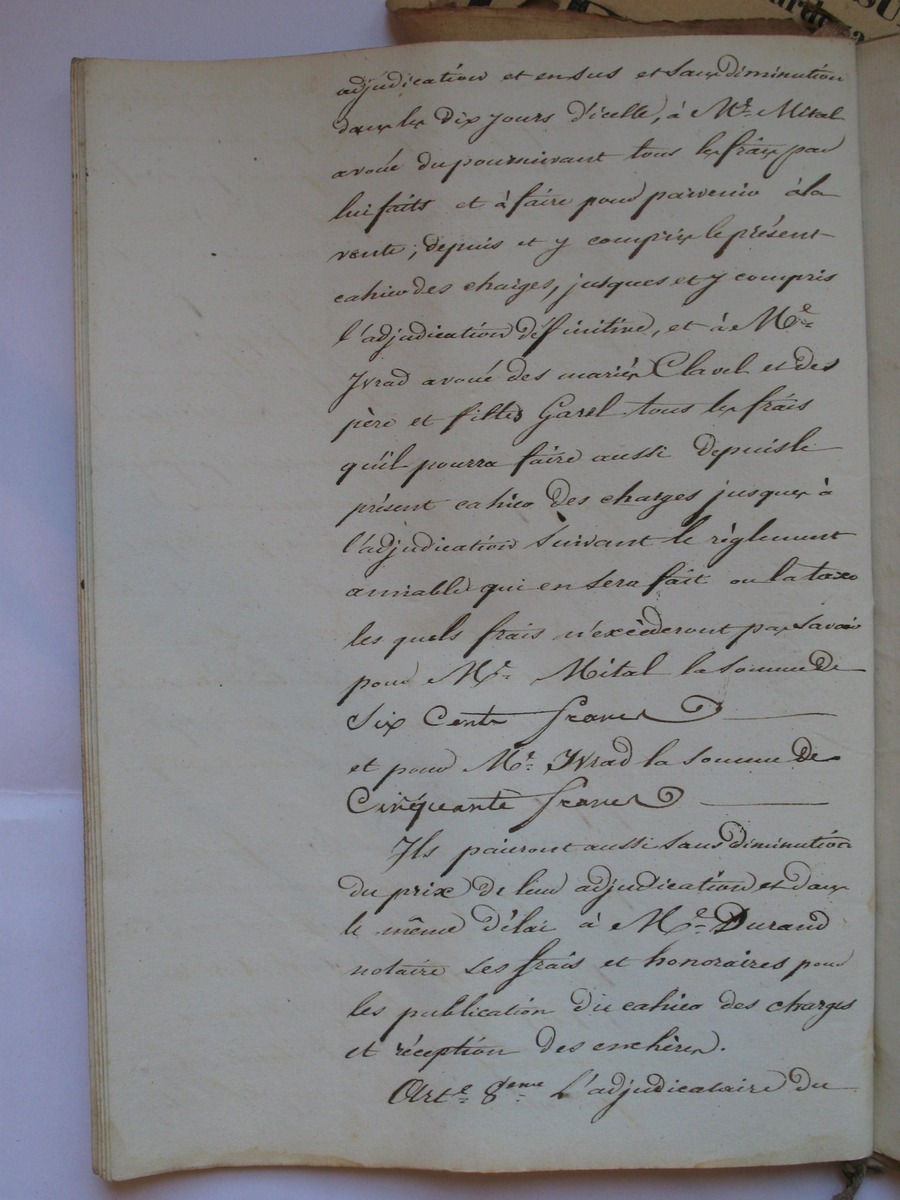 adjudication et en sus et sans diminution
dans les dix jours d'icelle, à Me. Mital
avoué du poursuivant tous les frais par
lui faits et à faire pour parvenir à la
vente; depuis et y compris le présent
cahier des charges, jusques et y compris
l'adjudication définitive, et à Me.
Ivrad avoué des mariés Clavel et des
père et filles Garel tous les frais
qu'il pourra faire aussi depuis le
présent cahier des charges jusques à
l'adjudication suivant le règlement
amiable qui en sera fait ou la taxe
les quels frais n'excèderont pas savoir
pour Me. Mital la somme de
Six Cents francs
et pour Me. Ivrad la somme de
Cinquante francs
Ils paieront aussi sans diminution
du prix de leur adjudication et dans
le même délai à Me. Durand
notaire ses frais et honoraires pour
les publication du cahier des charges
et réception des enchères.
Arte. 8eme. L'adjudicataire du